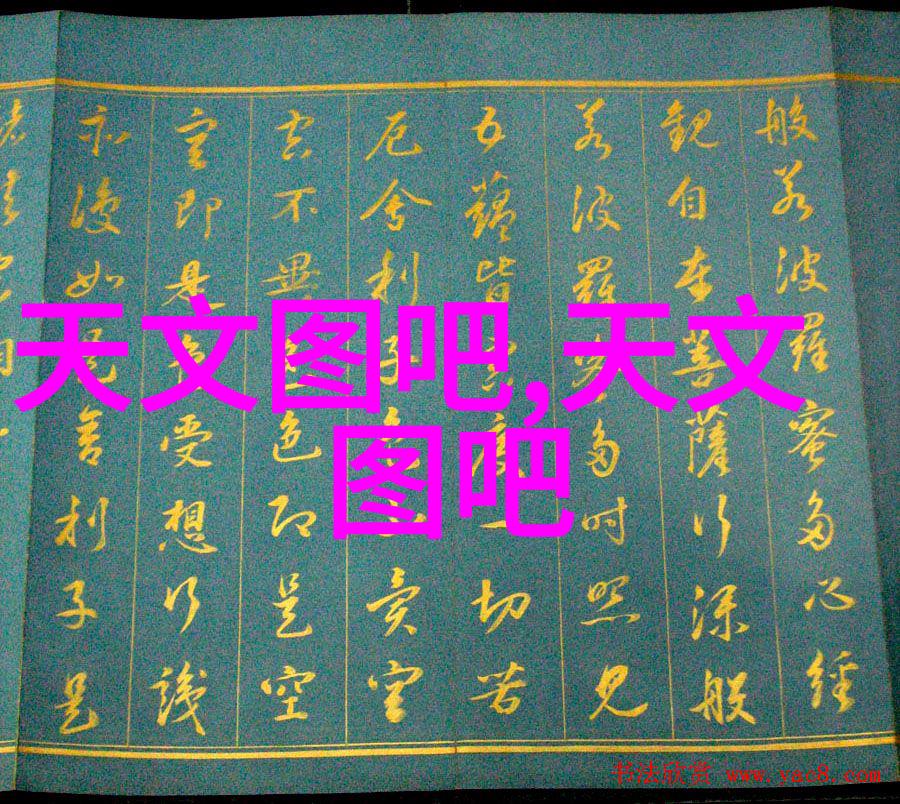 般若波羅蜜多心經
觀自在菩薩行深般
若波羅蜜多時照見
五蘊皆空度一切苦
厄舍利子色不異空
空不異色色即是空
空即是色受想行識
亦復如是舍利子是
天文图吧,天文
图吧
书法欣赏 www.yac8.com